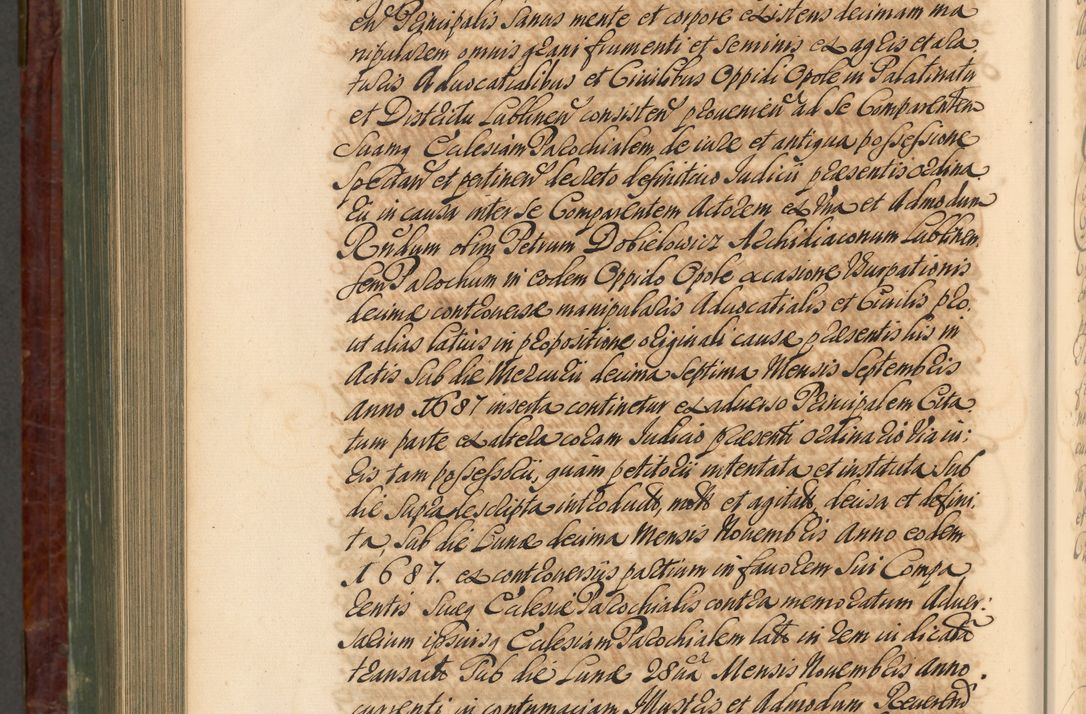 en Principalis Sanus mente et corpore existens decimam ma
nipularem omnis grani frumenti et seminis ex agris et ara
turis Advocatialibus et Civilibus Oppidi Opole in Palatinatu
et Districtu Lublinen consisten provenien ad se Comparentem
Suamq Ecclesiam Parochialem de iure et antiqua possessione
Spectan et pertinen decreto definitivo Iudicii praesentis ordina
rii in causa inter se Comparentem Actorem ex Vna et Admodum
Rndum olim Petrum Dobielowicz Archidiaconum Lublinen
sem Parochum in eodem Oppido Opole occasione Vsurpationis
decimae controversae manipularis Advocatialis et Civilis pro,
ut alias latius in propositione originali causae praesentis his in
Actis Sub die Mercurii decima Septima Mensis Septembris
Anno 1687 inserta continetur ex adverso Principalem Cita
tum parte ex altera coram Iudicio praesenti ordinario Via iu:
ris tam possessorii, quam petitorii intentata et instituta Sub
die supradescripta introducto, moto et agitato, decisa et defini
ta, Sub die Lunae decima Mensis Novembris Anno eodem
1687. ex controversiis partium in favorem Sui Compa
rentis Suaeq Ecclesiae Parochialis contra memoratum Adver:
sarium ipsiusq Ecclesiam Parochialem lato in rem iudicata
transacto Sub die Lunae 28va Mensis Novembris Anno
currenti in contumaciam Illustris et Admodum Reverend